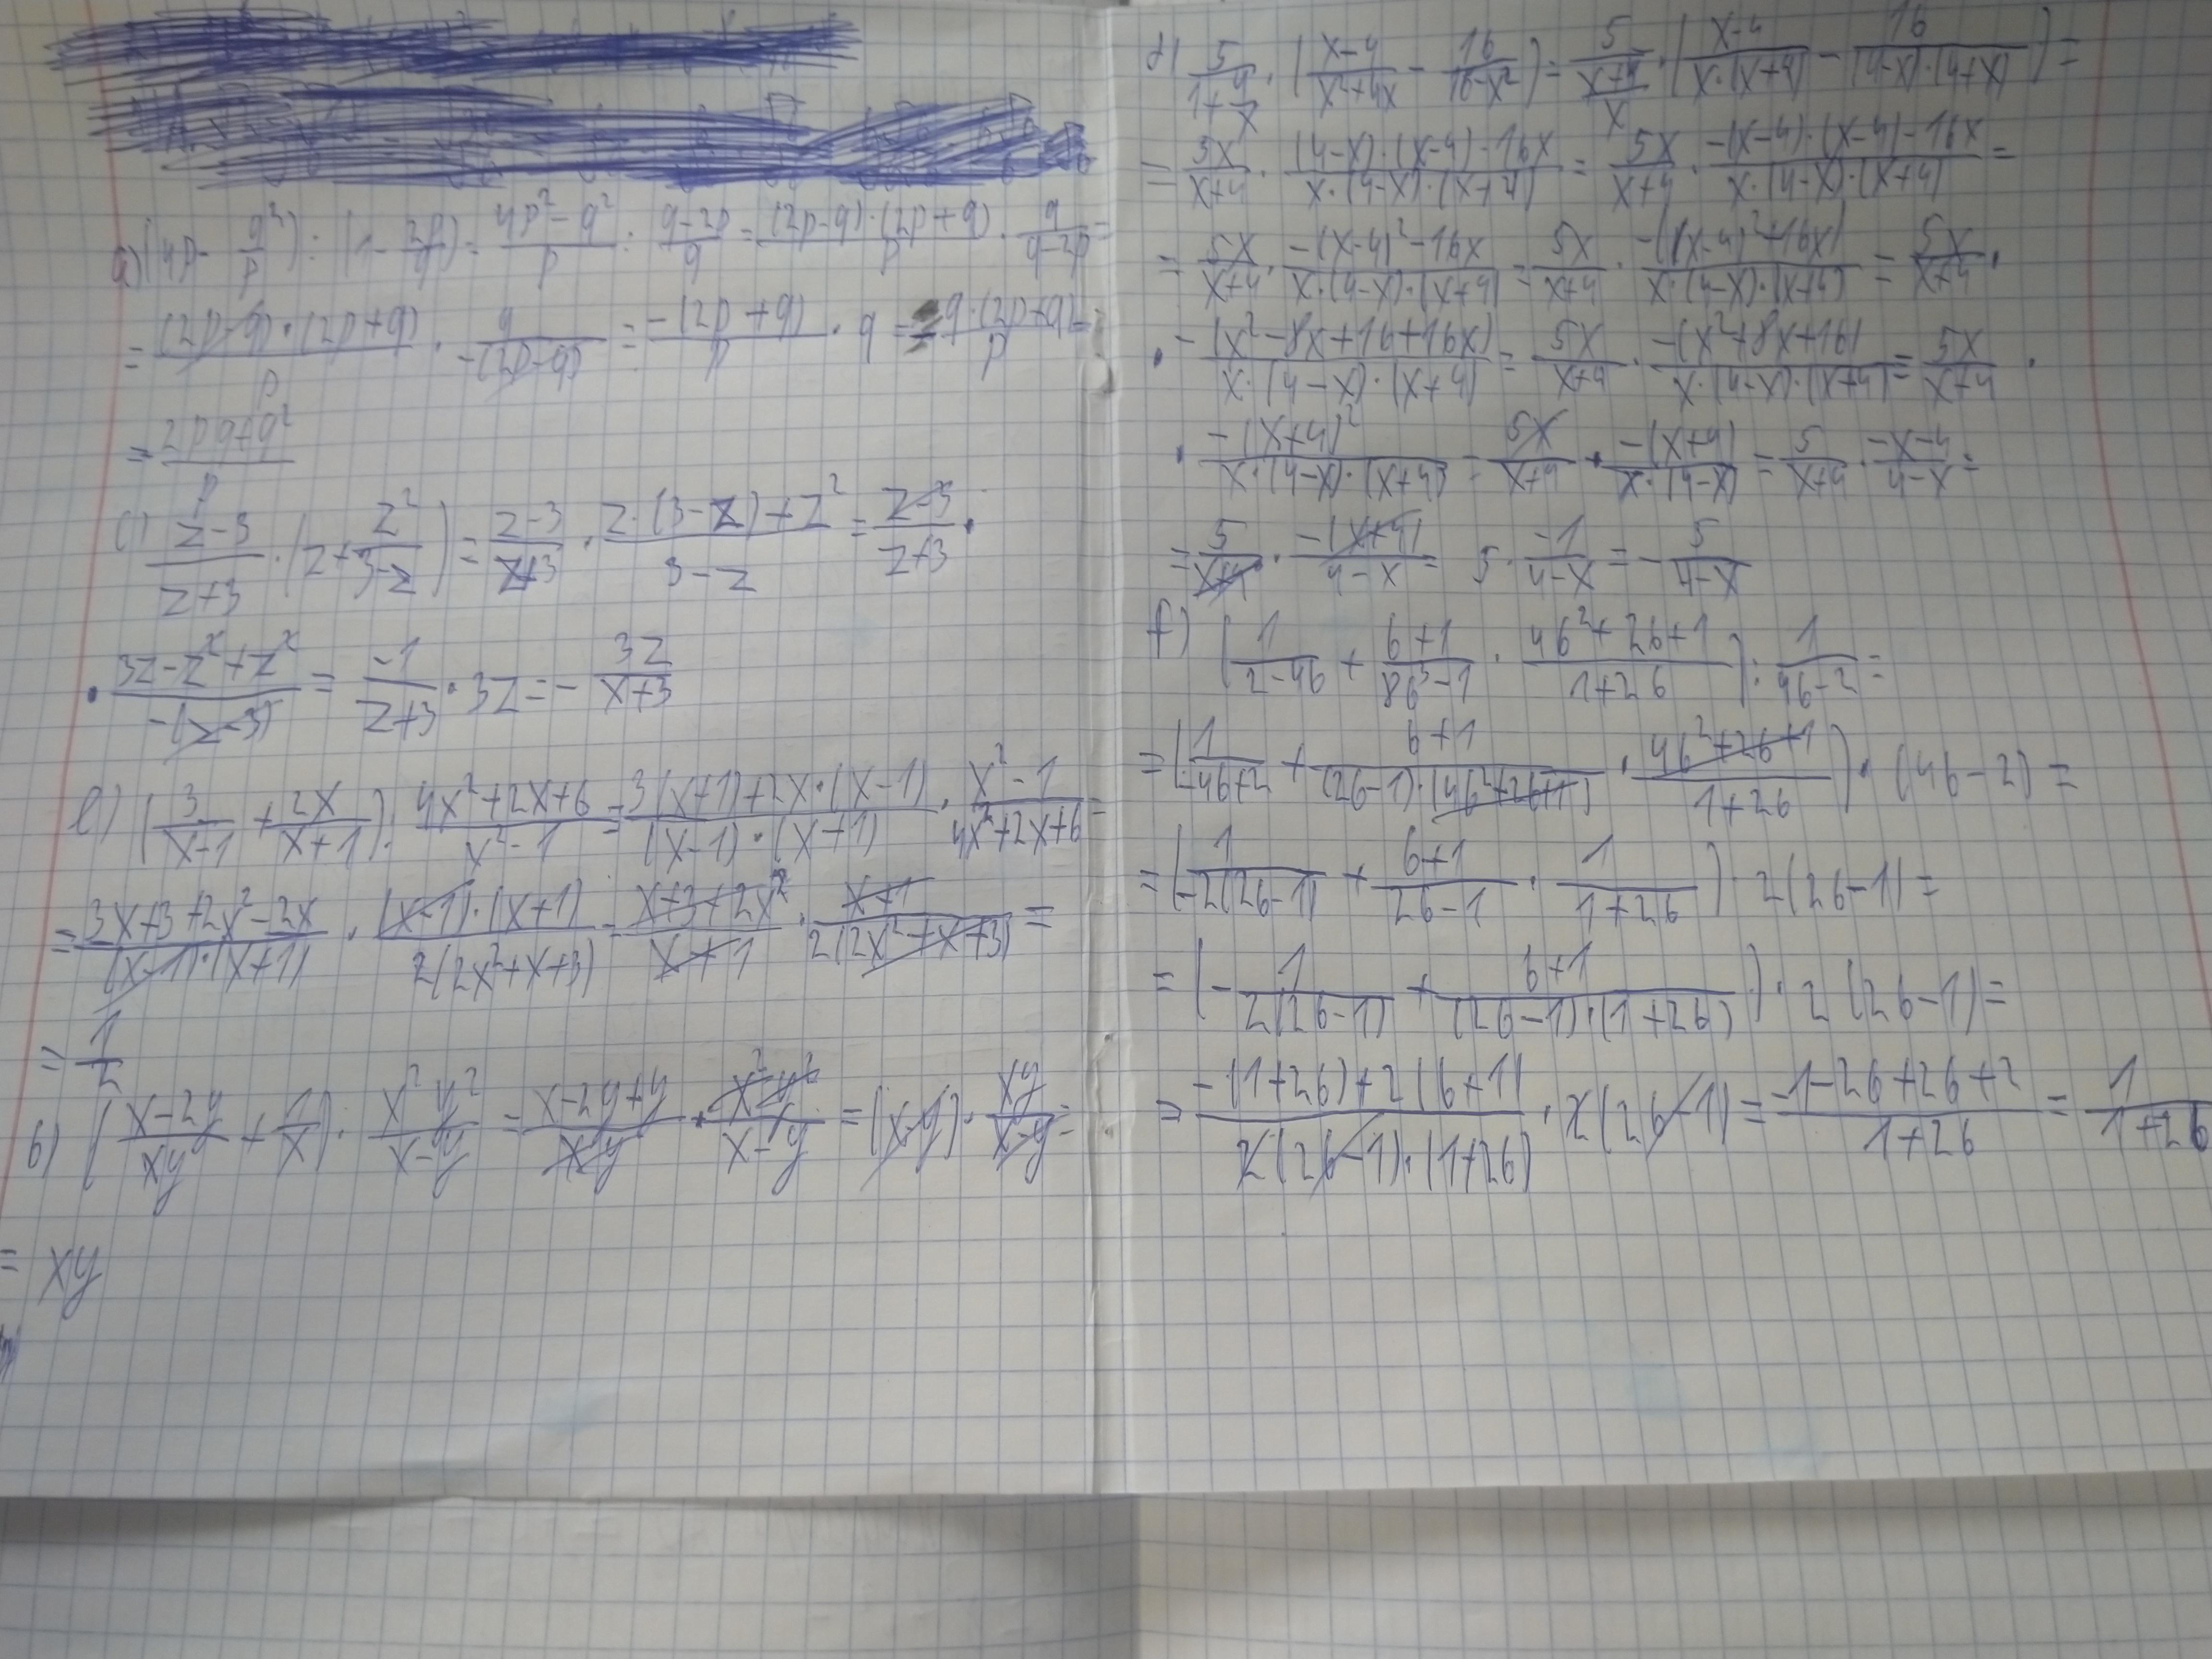 a) (4p - q²/p) : (1 - 2p/q) = (4p² - q²)/p : (q-2p)/q = (2p-q)·(2p+q)/p · q/(q-2p) =
= (2p-q)·(2p+q)/p · q/-(2p-q) = -(2p+q)/p · q = -q·(2p+q)/p =
= (2pq+q²)/p
c) (z-3)/(z+3) · (z + z²/(3-z)) = (z-3)/(z+3) · (z·(3-z)+z²)/(3-z) = (z-3)/(z+3) ·
· (3z-z²+z²)/-(z-3) = -1/(z+3) · 3z = - 3z/(x+3)
e) (3/(x-1) + 2x/(x+1)) : (4x²+2x+6)/(x²-1) = (3(x+1)+2x·(x-1))/((x-1)·(x+1)) · (x²-1)/(4x²+2x+6) =
= (3x+3+2x²-2x)/((x-1)·(x+1)) · (x-1)·(x+1)/2(2x²+x+3) = (x+3+2x²)/(x+1) · (x+1)/2(2x²+x+3) =
= 1/2
b) ((x-2y)/xy + 1/x) · x²y²/(x-y) = (x-2y+y)/xy · x²y²/(x-y) = (x-y) · xy/(x-y) =
= xy
d) 5/(1+4/x) · ((x-4)/(x²+4x) - 16/(16-x²)) = 5/((x+4)/x) · ((x-4)/(x·(x+4)) - 16/((4-x)·(4+x))) =
= 5x/(x+4) · ((4-x)·(x-4)-16x)/(x·(4-x)·(x+4)) = 5x/(x+4) · (-(x-4)·(x-4)-16x)/(x·(4-x)·(x+4)) =
= 5x/(x+4) · (-(x-4)²-16x)/(x·(4-x)·(x+4)) = 5x/(x+4) · -((x-4)²+16x)/(x·(4-x)·(x+4)) = 5x/(x+4) ·
· -(x²-8x+16+16x)/(x·(4-x)·(x+4)) = 5x/(x+4) · -(x²+8x+16)/(x·(4-x)·(x+4)) = 5x/(x+4) ·
· -(x+4)²/(x·(4-x)·(x+4)) = 5x/(x+4) · -(x+4)/(x·(4-x)) = 5/(x+4) · (-x-4)/(4-x) =
= 5/(x+4) · -(x+4)/(4-x) = 5 · -1/(4-x) = - 5/(4-x)
f) (1/(2-4b) + (b+1)/(8b³-1) · (4b²+2b+1)/(1+2b)) : 1/(4b-2) =
= (1/(-4b+2) + (b+1)/((2b-1)·(4b²+2b+1)) · (4b²+2b+1)/(1+2b)) · (4b-2) =
= (1/-2(2b-1) + (b+1)/(2b-1) · 1/(1+2b)) · 2(2b-1) =
= (- 1/2(2b-1) + (b+1)/((2b-1)·(1+2b))) · 2(2b-1) =
= (-(1+2b)+2(b+1))/(2(2b-1)·(1+2b)) · 2(2b-1) = (-1-2b+2b+2)/(1+2b) = 1/(1+2b)